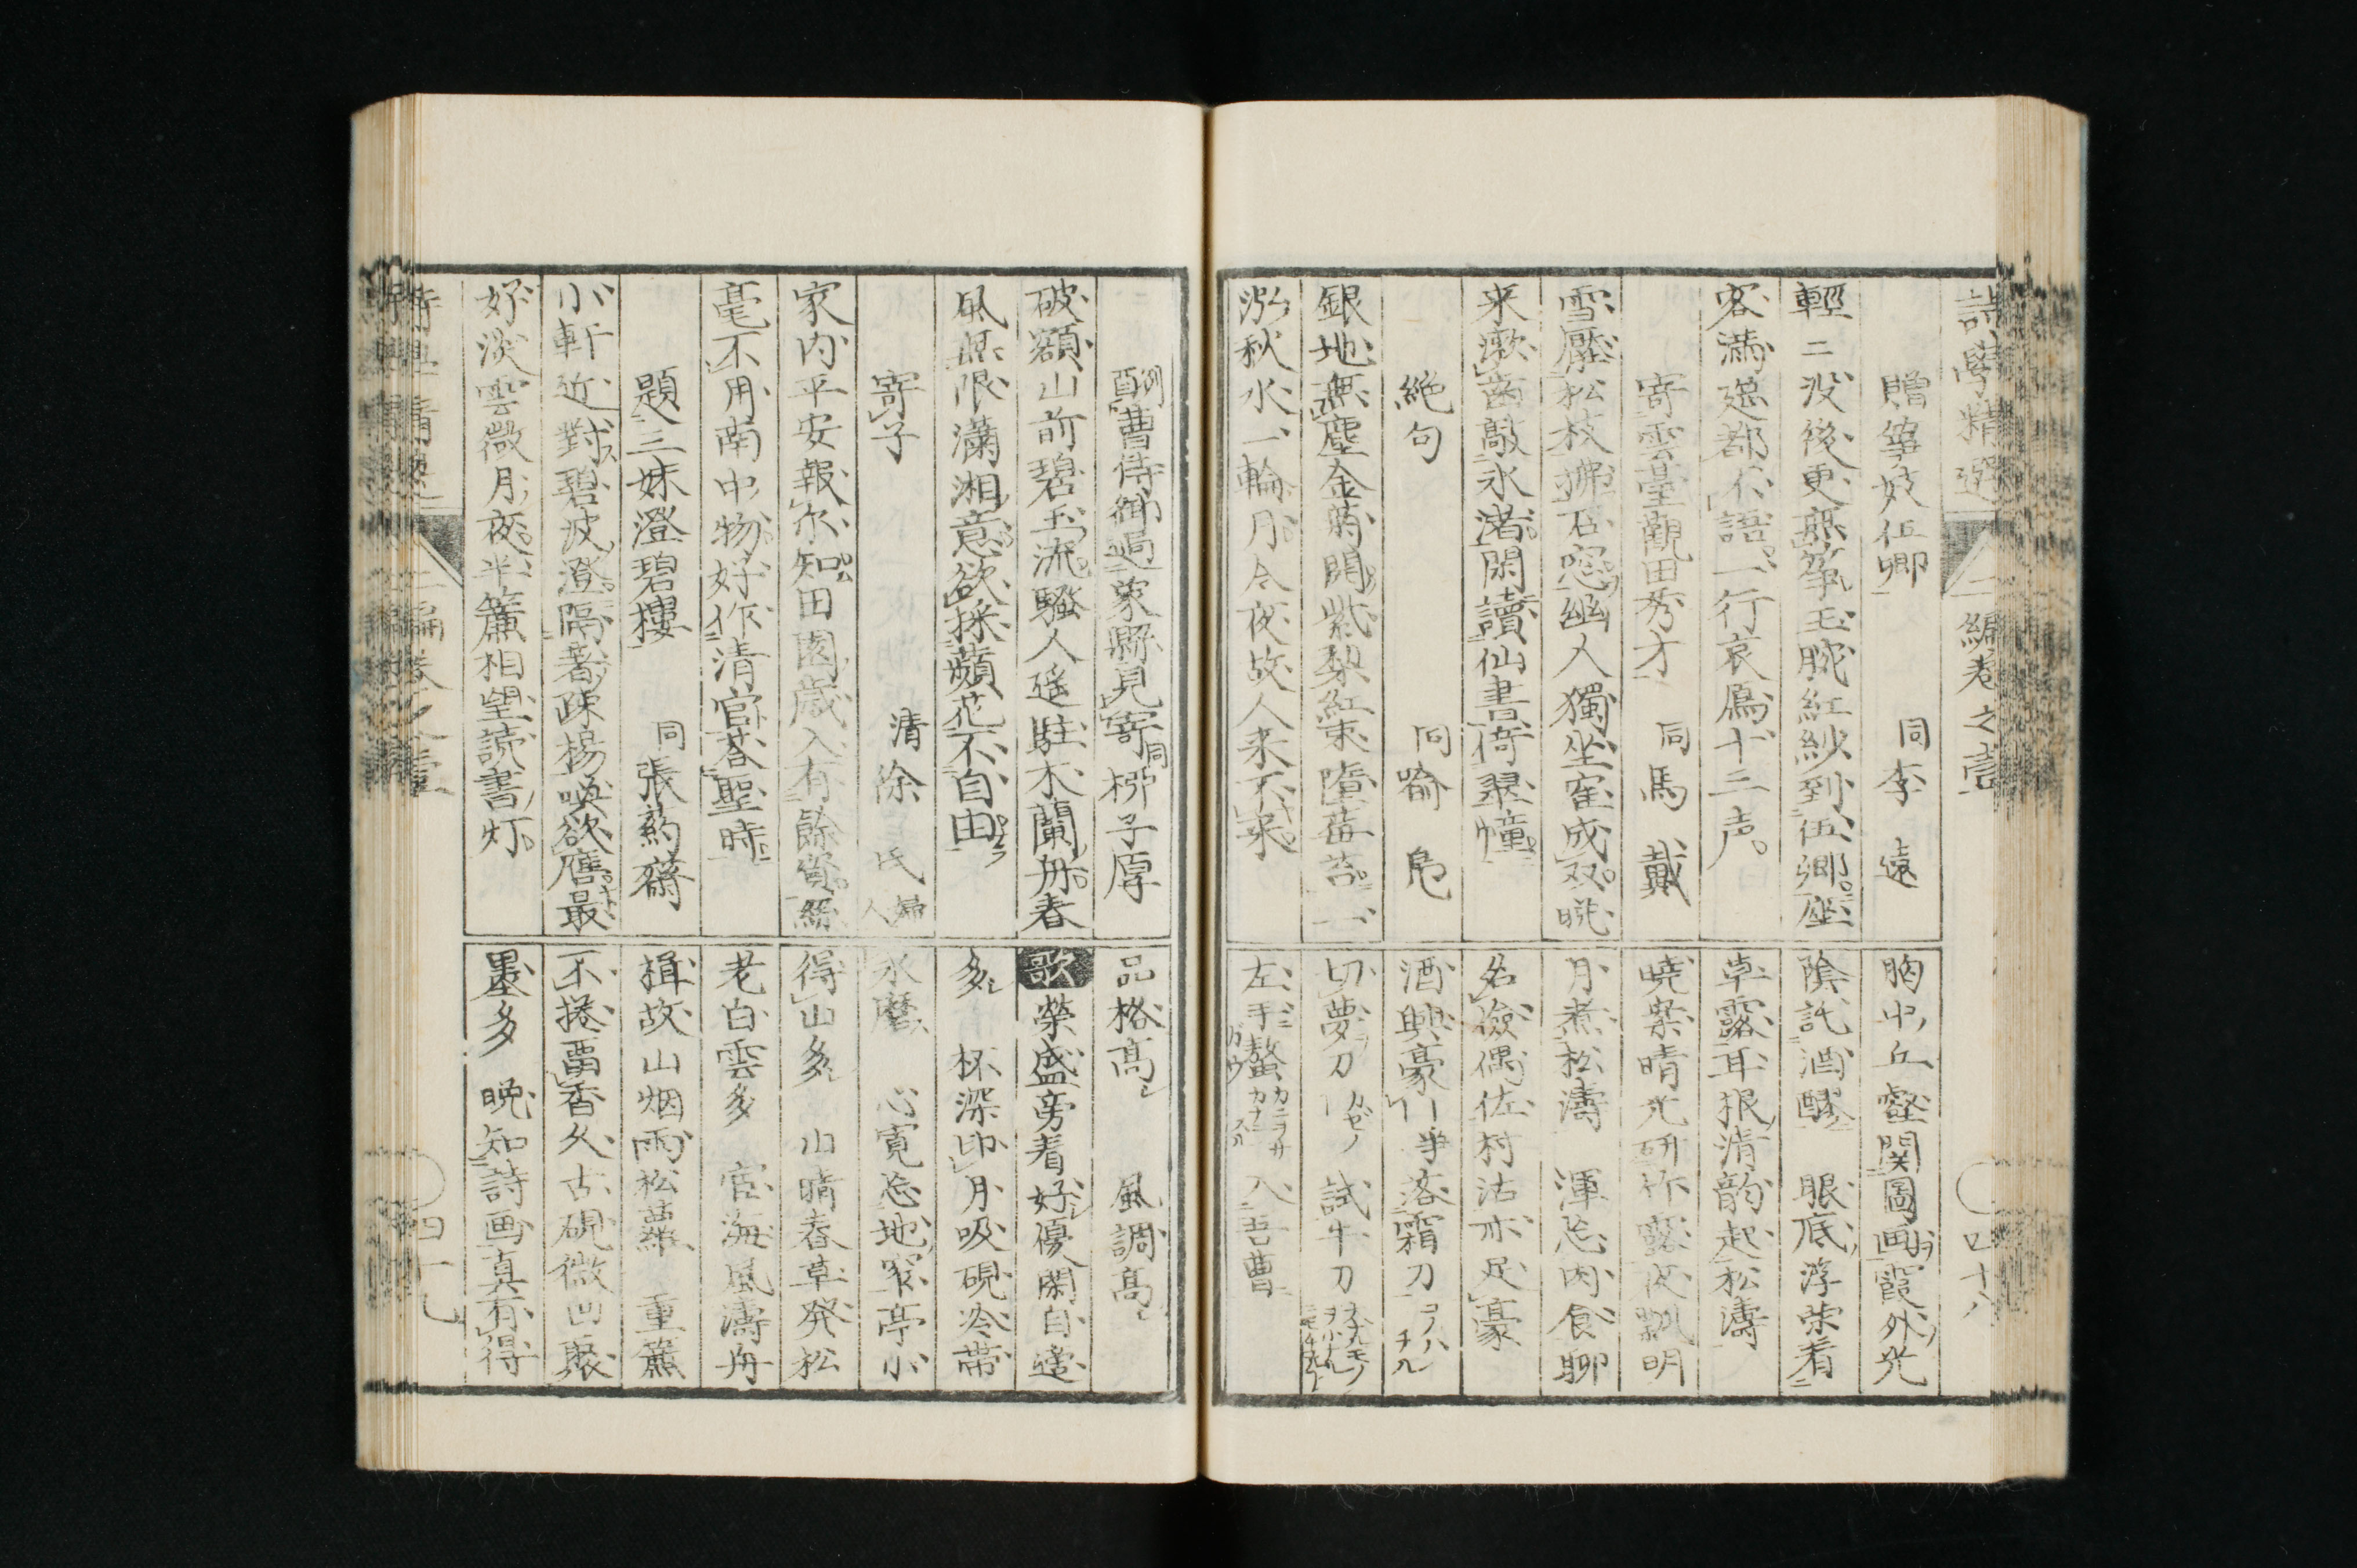 詩學精選 二編卷之壹 四十八
贈箏妓伍卿 同李遠
輕二没後更無箏玉腕紅紗到伍卿座
客滿筵都不語一行哀鴈十三声
寄雲臺觀田秀才 同馬戴
雪壓松枝拂石窓幽人獨坐寉成双晩
来漱齒敲氷渚閑讀仙書倚翠幢
絶句 同喩鳧
銀地無塵金菊開紫梨紅棗墮莓苔一
泓秋水一輪月今夜故人来不来
胸中丘壑関圖画霞外光
陰託酒醪 眼底浮栄看
草露耳根清韵起松濤
暁案晴光研竹露夜瓢明
月煮松濤 渾忘肉食聊
名儉偶佐村沽亦足豪
酒興豪 争落霜刀コノハチル
切夢刀カゼノ 試牛刀
左手螯 入吾曹
酬曹侍御過象縣見寄 同柳子厚
破額山前碧玉流騷人遙駐木蘭舟春
風無限瀟湘意欲採蘋花不自由
寄子 清徐氏婦人
家内平安報尔知田園歳入有餘資絲
毫不用南中物好作清官荅聖時
題三妹澄碧樓 同張葯齋
小軒近對碧波澄隔著疎楊喚欲譍最
好淡雲微月夜半簾相望読書灯
品格髙 風調髙
歌 榮盛旁看好優閑自遠
多 杯深印月吸硯冷帯
氷磨 心寛忘地窄亭小
得山多 山晴春草発松
老白雲多 宦海風濤舟
楫故山烟雨松蘿 重簾
不捲畱香久古硯微凹聚
墨多 晩知詩画真有得
詩學精選 二編卷之壹 四十九